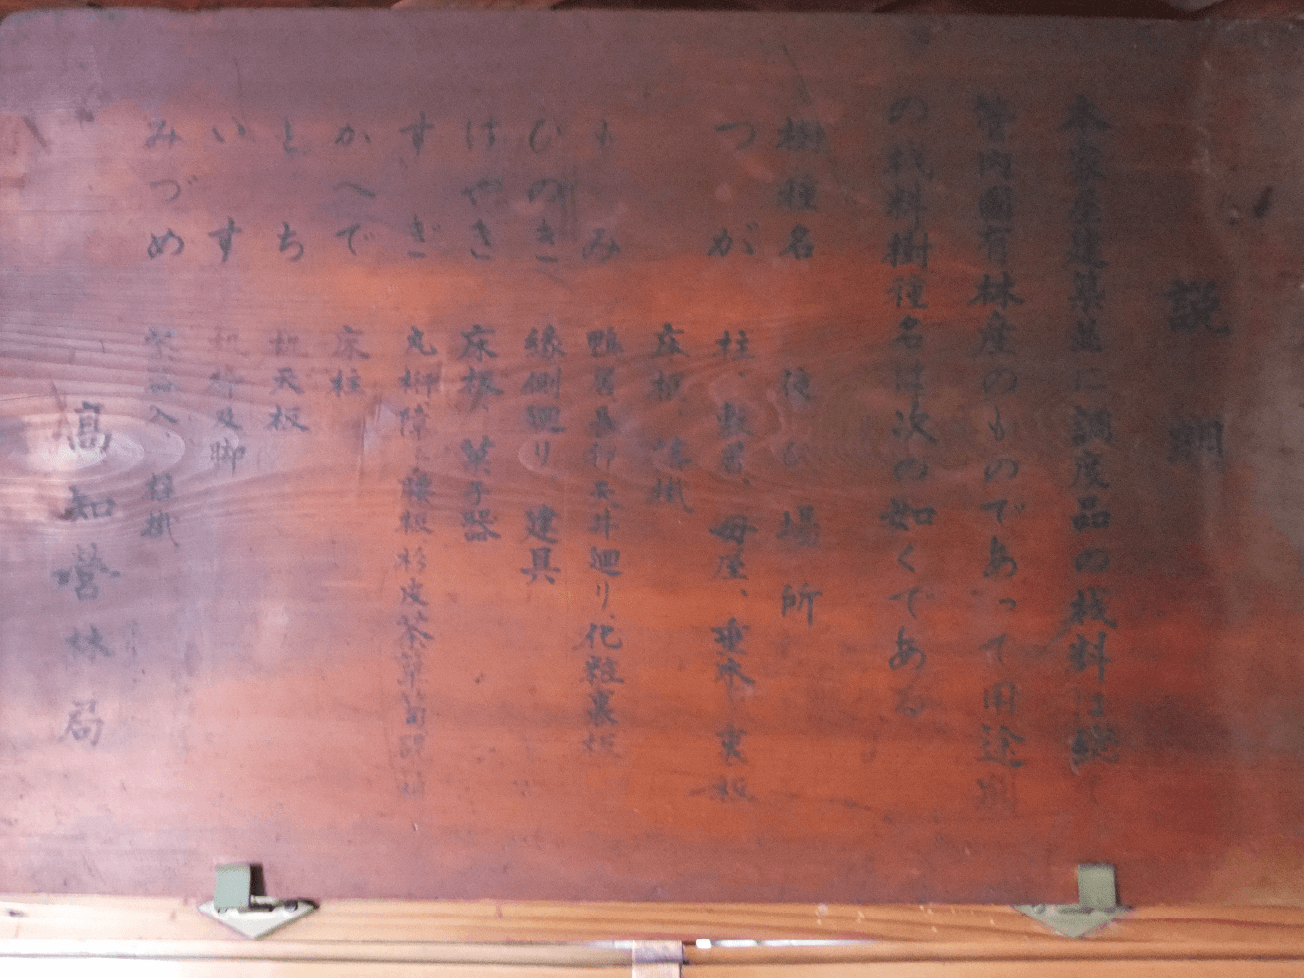 説明
本家屋建築並に調度品の材料は総て
管内國有林産のものであって用途別
の材料樹種名は次の如くである
樹種名 使ひ場所
つが 柱、敷居、母屋、垂木、裏板
床板、
もみ 鴨居長押天井廻り、化粧裏板
ひのき 縁側廻り、建具
けやき 床板、菓子器
すぎ 丸桁、障子腰板杉皮茶箪笥硯箱
かへで 床柱
とち 机天板
いす 机枠及脚
みづめ 柱掛
高知營林局